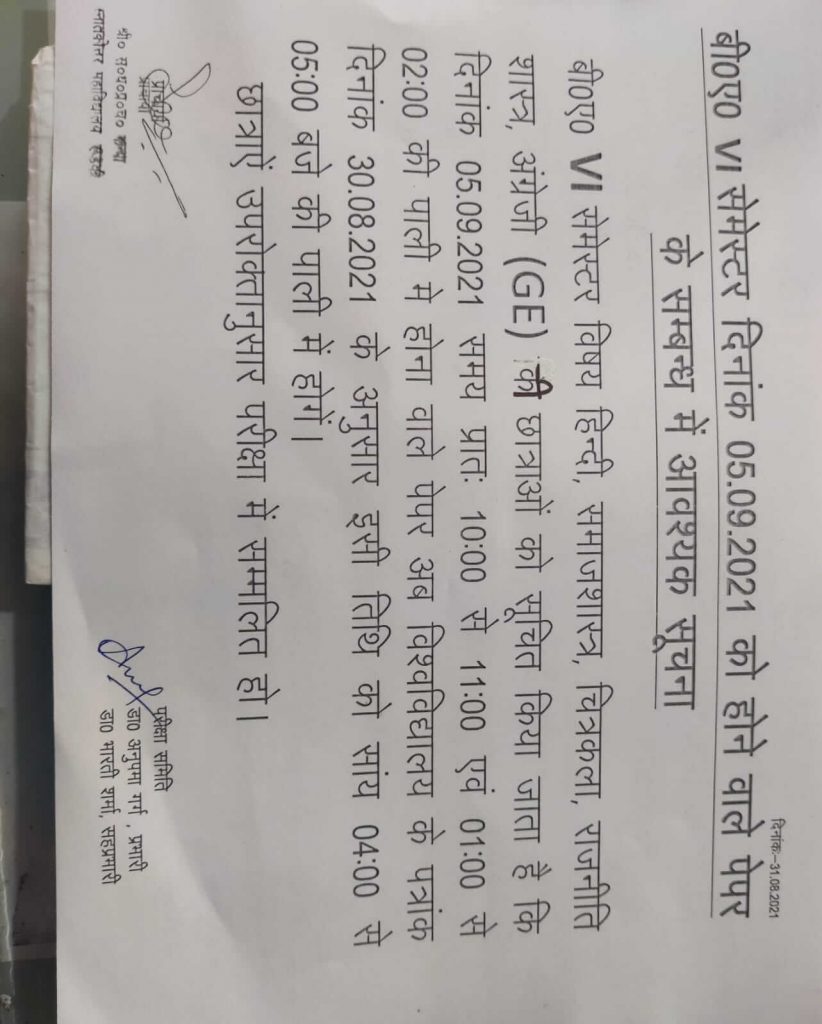 दिनांक:–31.08.2021
बी0ए0 VI सेमेस्टर दिनांक 05.09.2021 को होने वाले पेपर
के सम्बन्ध में आवश्यक सूचना
बी0ए0 VI सेमेस्टर विषय हिन्दी, समाजशास्त्र, चित्रकला, राजनीति
शास्त्र, अंग्रेजी (GE) की छात्राओं को सूचित किया जाता है कि
दिनांक 05.09.2021 समय प्रातः 10:00 से 11:00 एवं 01:00 से
02:00 की पाली मे होना वाले पेपर अब विश्वविद्यालय के पत्रांक
दिनांक 30.08.2021 के अनुसार इसी तिथि को सांय 04:00 से
05:00 बजे की पाली में होगें।
छात्राऐं उपरोक्तानुसार परीक्षा में सम्मलित हो।
परीक्षा समिति
डा0 अनुपमा गर्ग , प्रभारी
डा0 भारती शर्मा, सहप्रभारी
प्राचार्या
श्री० स०ध०प्र०च० कन्या
स्नातकोत्तर महाविद्यालय रूड़की